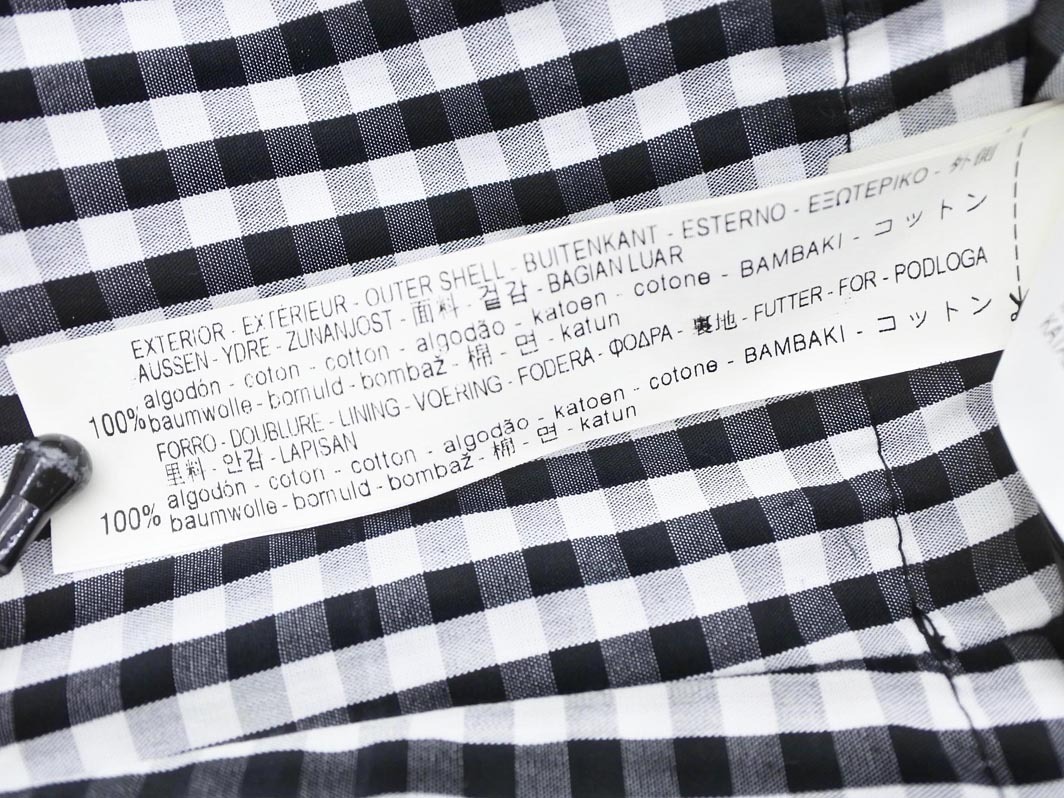 EXTERIOR - EXTÉRIEUR - OUTER SHELL - BUITENKANT - ESTERNO - ΕΞΩΤΕΡΙΚΟ - 外側
AUSSEN - YDRE - ZUNANJOST - 面料 - 겉감 - BAGIAN LUAR
algodón - coton - cotton - algodão - katoen - cotone - BAMBAKI - コットン
100% baumwolle - bomuld - bombaž - 棉 - 면 - katun
FORRO - DOUBLURE - LINING - VOERING - FODERA - ΦΟΔΡΑ - 裏地 - FUTTER - FOR - PODLOGA
里料 - 안감 - LAPISAN
algodón - coton - cotton - algodão - katoen - cotone - BAMBAKI - コットン
100% baumwolle - bomuld - bombaž - 棉 - 면 - katun